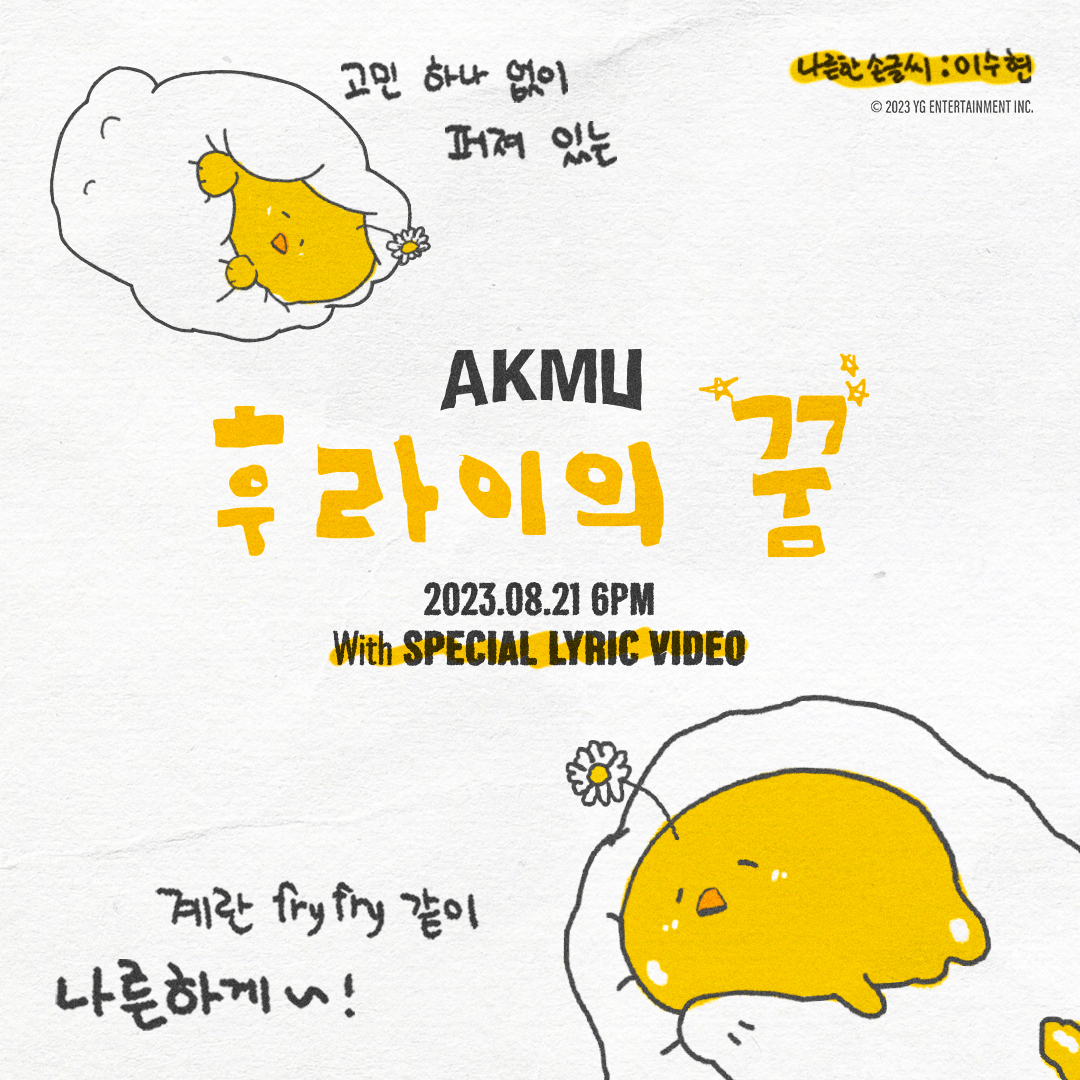 고민 하나 없이
퍼져 있는
나른한 손글씨 : 이수현
© 2023 YG ENTERTAINMENT INC.
AKMU
후라이의 꿈
2023.08.21 6PM
With SPECIAL LYRIC VIDEO
계란 fry fry 같이
나른하게~!